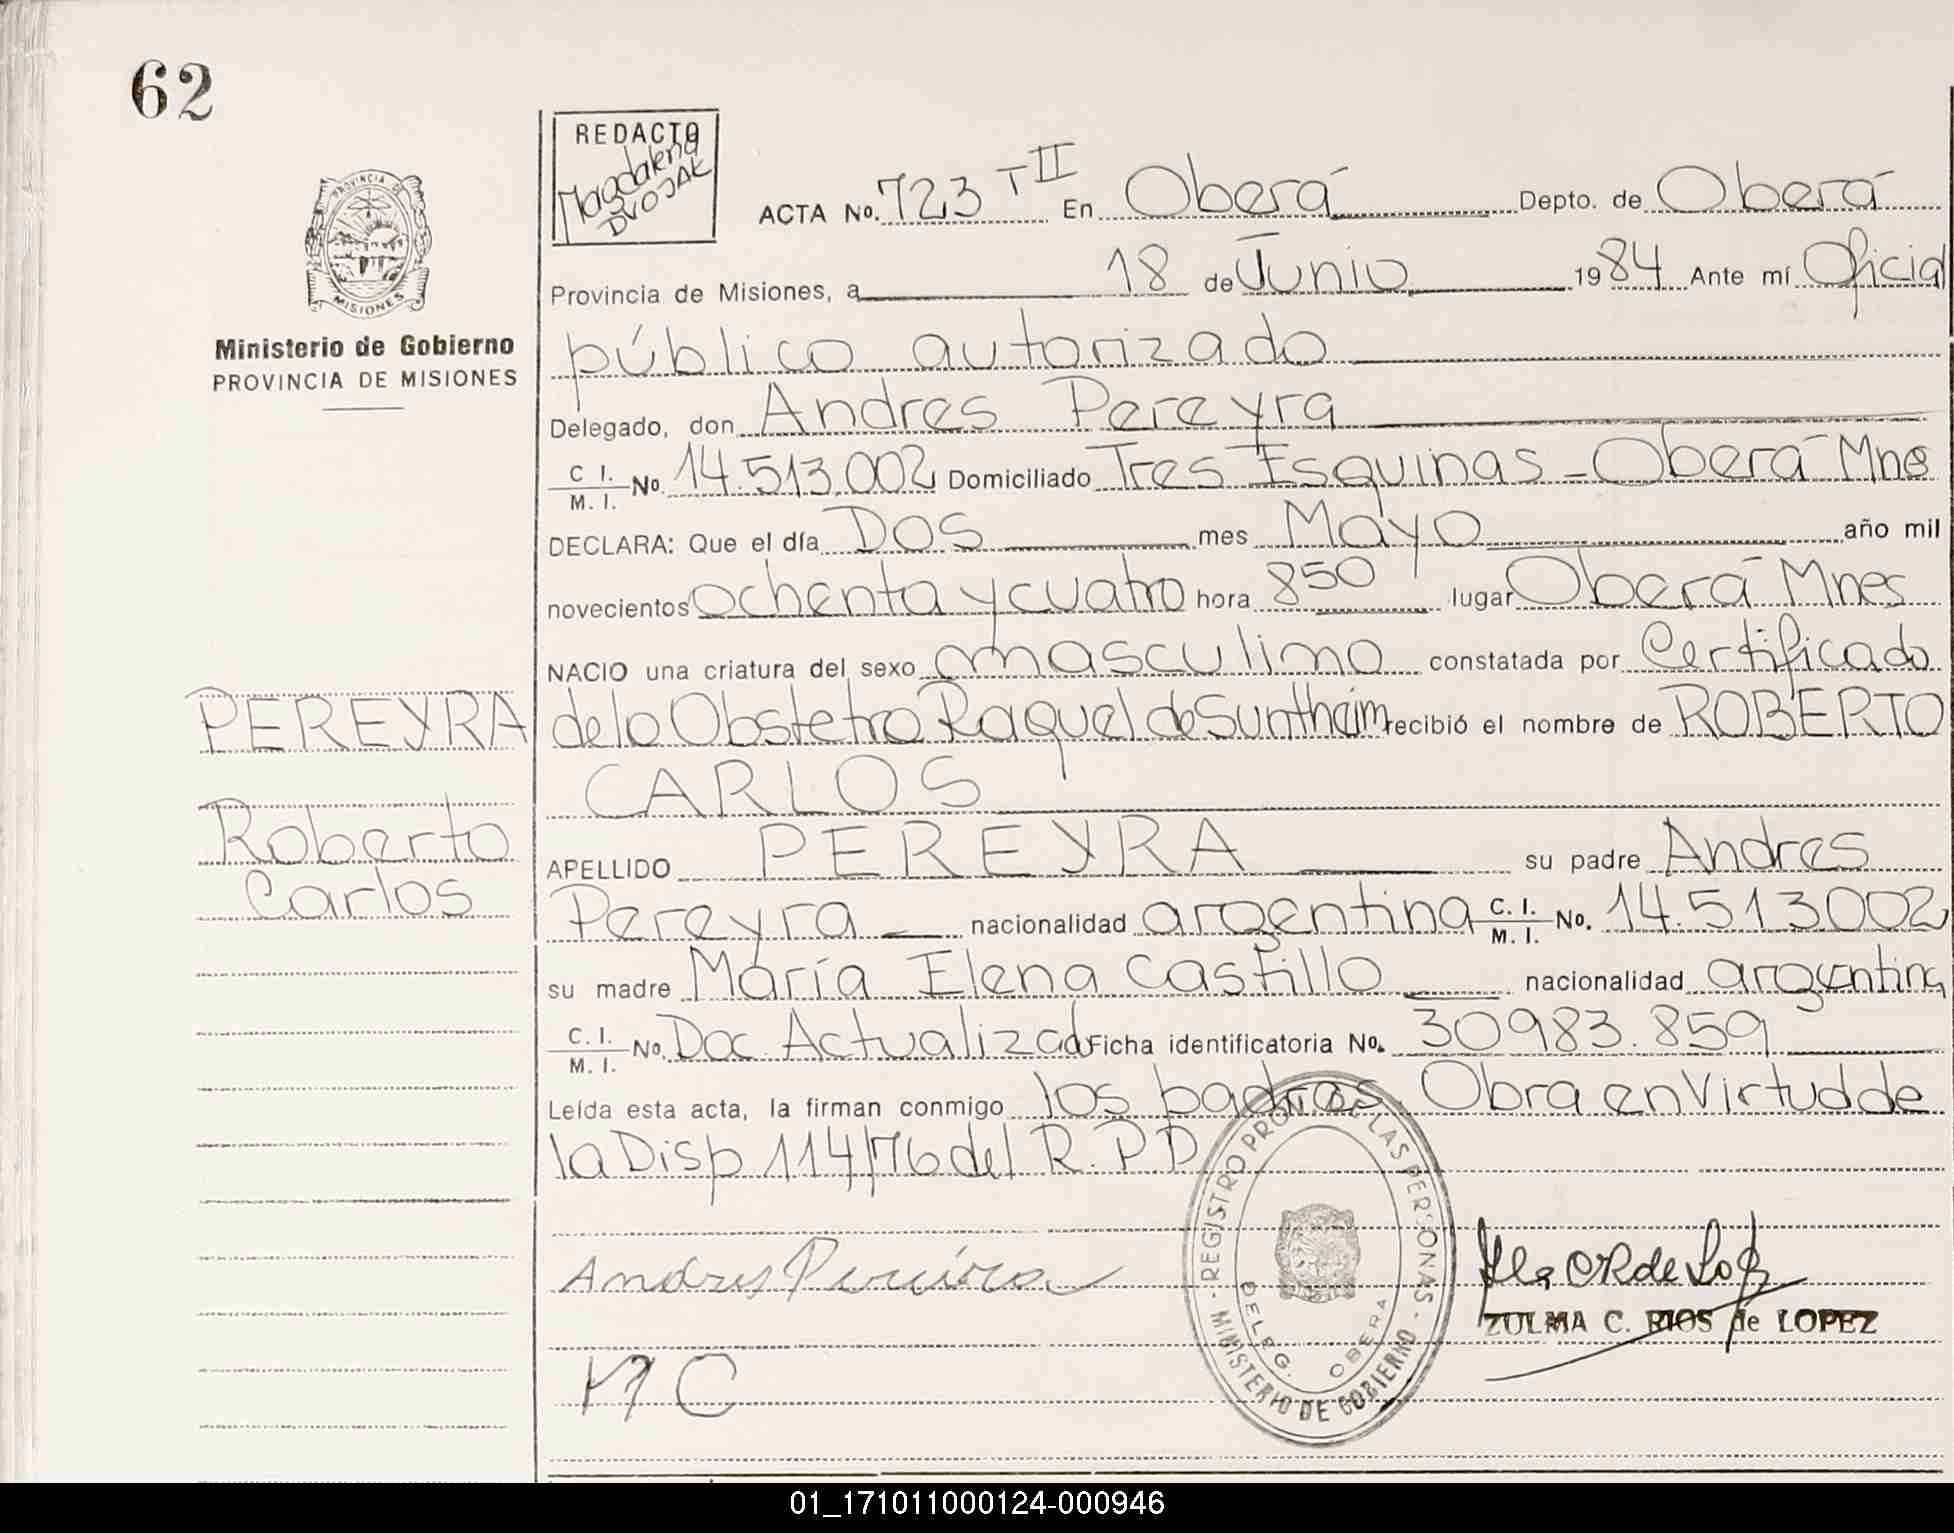 62
REDACTO
Magdalena
DVOJAK
ACTA No. 723 TII En Oberá Depto. de Oberá
PROVINCIA DE
MISIONES
Provincia de Misiones, a 18 de Junio 1984 Ante mí Oficial
Ministerio de Gobierno
PROVINCIA DE MISIONES
público autorizado
Delegado, don Andres Pereyra
C. I. M. I. No. 14.513.002 Domiciliado Tres Esquinas - Oberá Mnes
DECLARA: Que el día DOS mes Mayo año mil
novecientos ochenta y cuatro hora 850 lugar Oberá Mnes
NACIO una criatura del sexo masculino constatada por Certificado
PEREYRA
de la Obstetra Raquel de Suntheim recibió el nombre de ROBERTO
CARLOS
Roberto
Carlos
APELLIDO PEREYRA su padre Andres
Pereyra nacionalidad argentina C. I. M. I. No. 14.513002
su madre María Elena Castillo nacionalidad argentina
C. I. M. I. No. Doc. Actualizad Ficha identificatoria No. 30983.859
Leída esta acta, la firman conmigo los padres. Obra en Virtud de
la Disp 114/76 del R.P.D
REGISTRO PROV. DE LAS PERSONAS - MINISTERIO DE GOBIERNO -
DELEG. OBERA
Andres Pereira
MC
ZULMA C. RIOS de LOPEZ
01_171011000124-000946